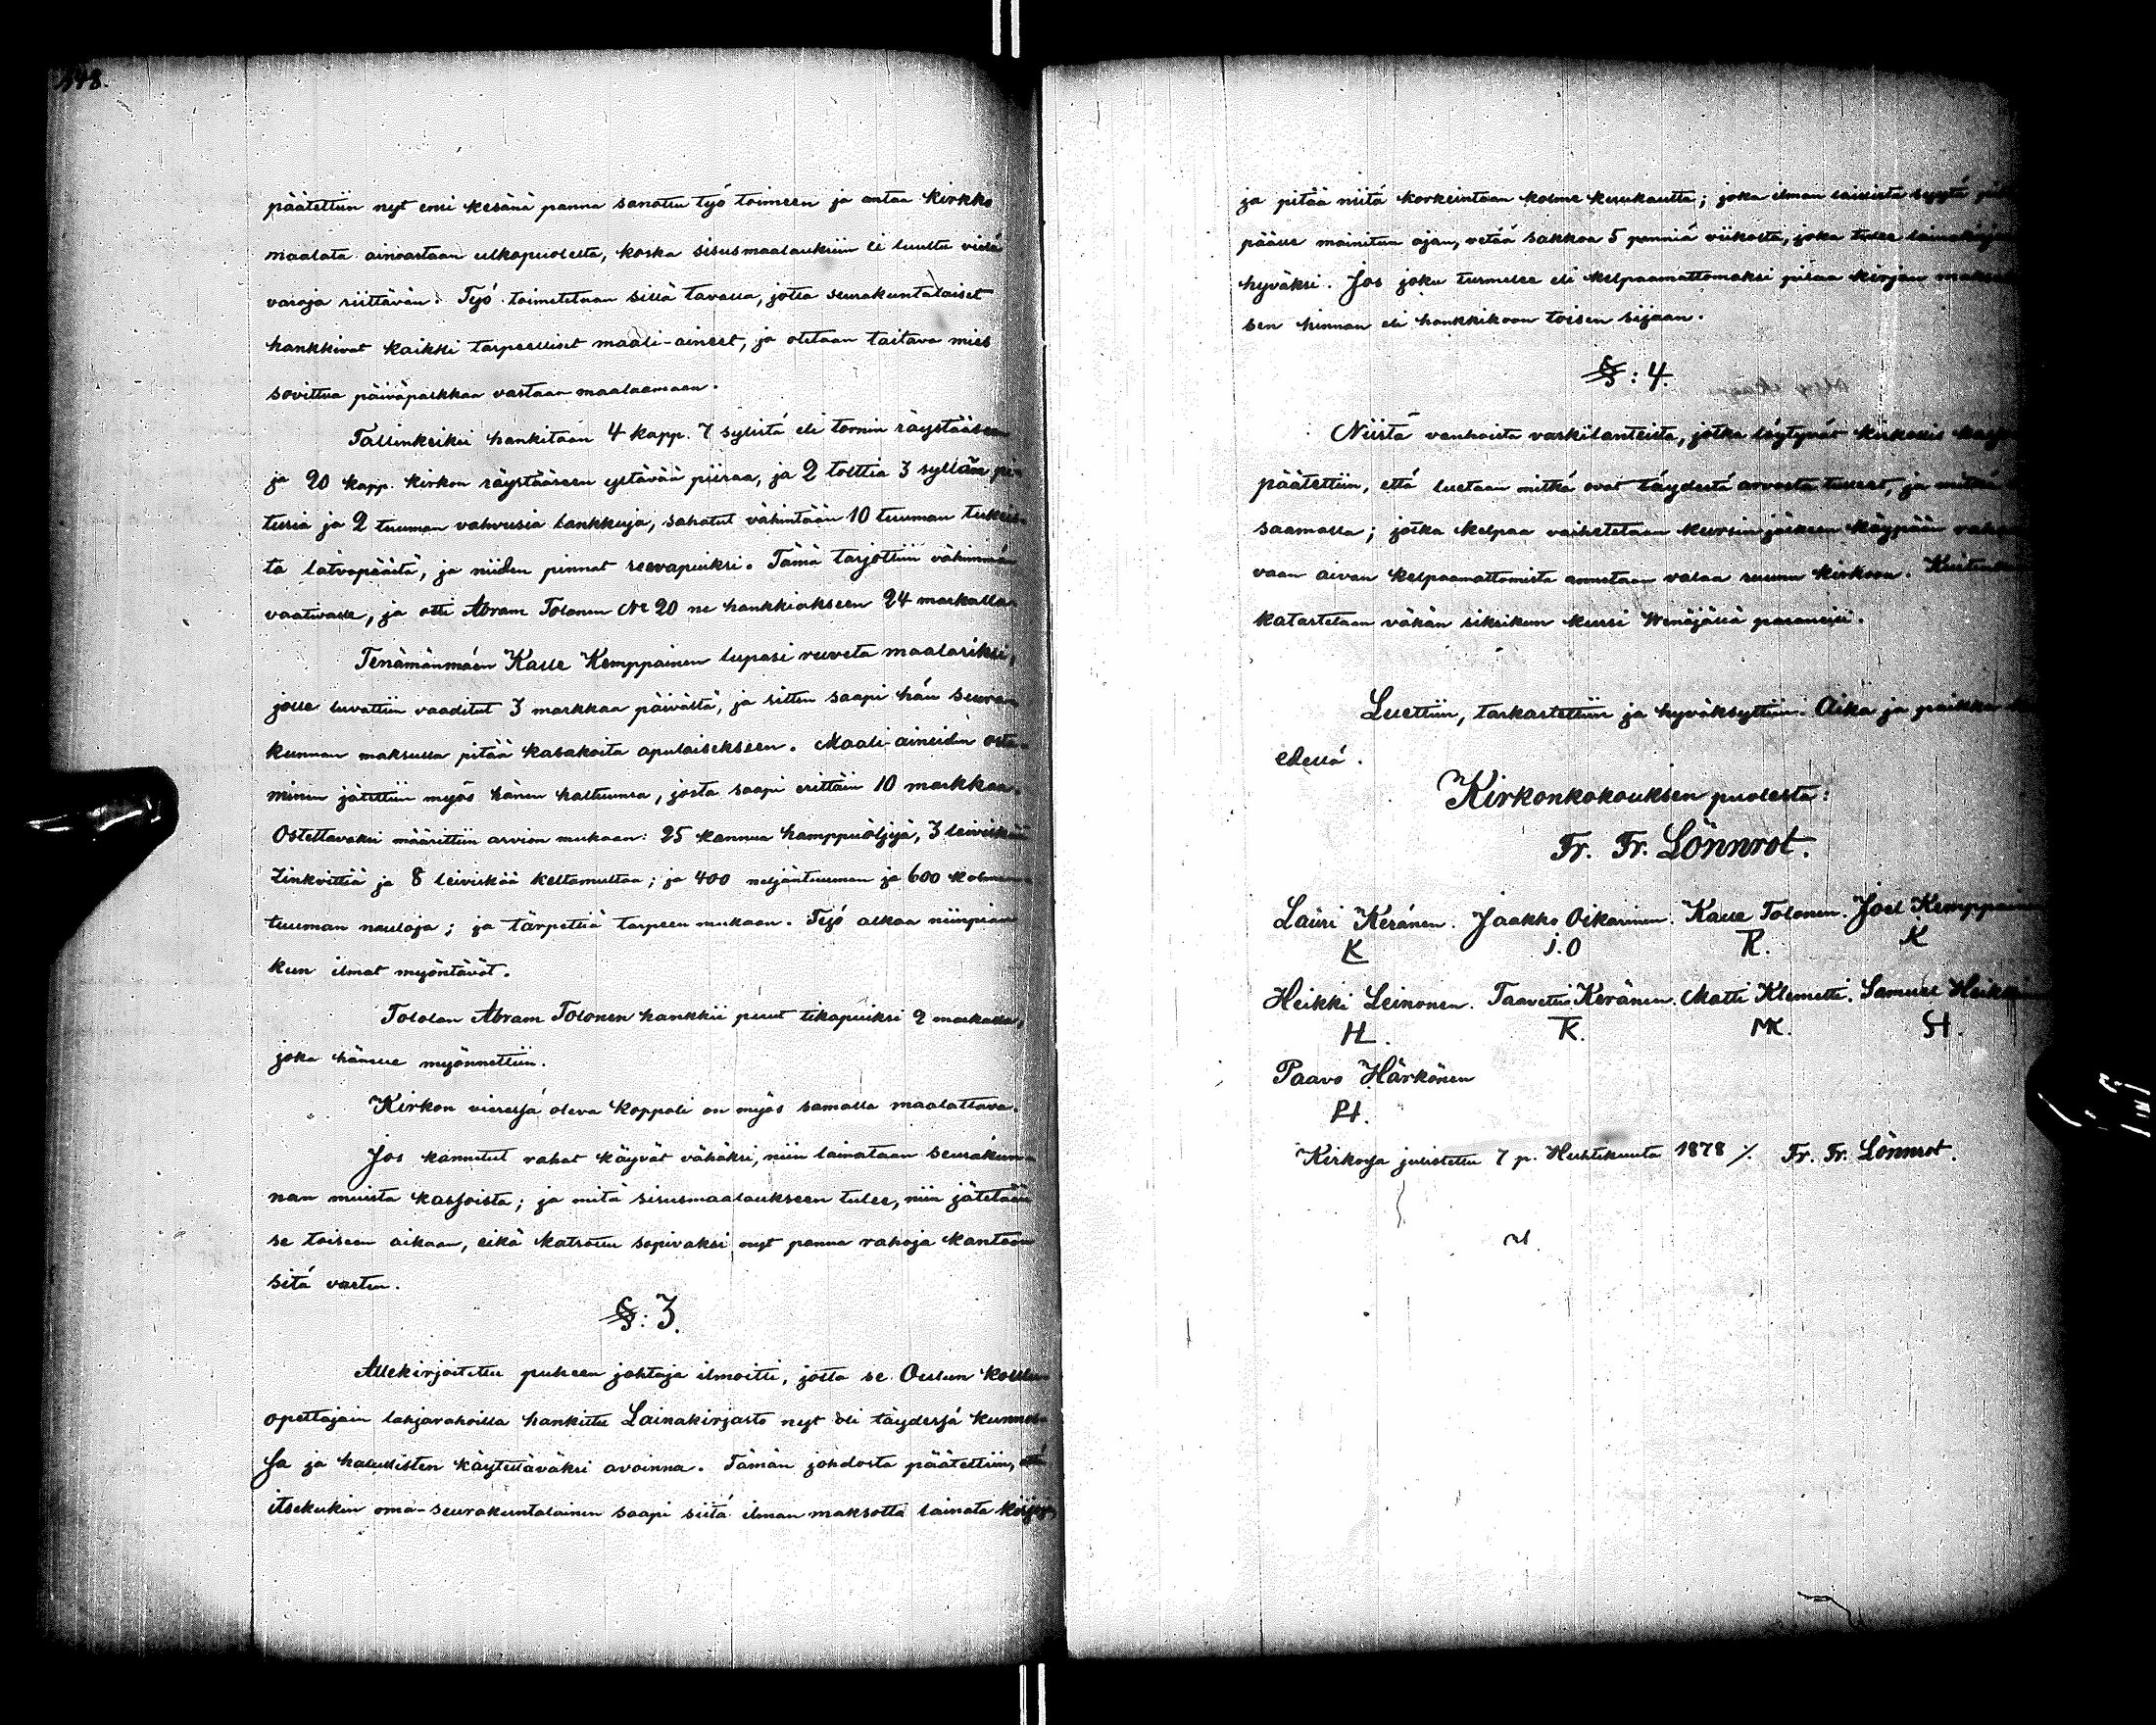 148.
päätettiin nyt ensi kesänä panna sanottu työ toimeen ja antaa kirkko
maalata ainoastaan ulkopuolelta, koska sisusmaalauksiin ei luultu vielä
varoja riittävän. Työ toimitetaan sillä tavalla, jotta seurakuntalaiset
hankkivat kaikki tarpeelliset maali-aineet, ja otetaan taitava mies
sovittua päiväpalkkaa vastaan maalaamaan.
Tallinkeiksi hankitaan 4 kapp. 7 sylistä eli tornin räystääseen
ja 20 kapp. kirkon räystääseen ystävää puraa, ja 2 tolttia 3 syllän pi-
tusia ja 2 tuuman vahvusia lankkuja, sahatut vähintään 10 tuuman tukeis-
ta latvapäästä, ja niiden pinnat reevapuiksi. Tämä tarjottiin vähimmän
vaativalle, ja otti Abram Tolonen No 20 ne hankkiakseen 24 markalla.
Tenämänmäen Kalle Kemppainen lupasi ruveta maalariksi,
jolle luvattiin vaaditut 3 markkaa päivältä, ja sitten saapi hän seura-
kunnan maksulla pitää kasakoita apulaisekseen. Maali-aineiden osta-
minen jätettiin myös hänen haltuunsa, josta saapi erittäin 10 markkaa.
Ostettavaksi määrättiin arvion mukaan: 25 kannua hamppuöljyä, 3 leiviskää
Zinkvittiä ja 8 leiviskää keltamultaa; ja 400 neljäntuuman ja 600 kolmen-
tuuman nauloja; ja tärpettiä tarpeen mukaan. Työ alkaa niinpian
kun ilmat myöntävät.
Tololan Abram Tolonen hankkii puut tikapuiksi 2 markalla,
joka hänelle myönnettiin.
Kirkon vieressä oleva koppoli on myös samalla maalattava.
Jos kannetut rahat käyvät vähäksi, niin lainataan seurakun-
nan muista kassoista; ja mitä sisusmaalaukseen tulee, niin jätetään
se toiseen aikaan, eikä katsottu sopivaksi nyt panna rahoja kantoon
sitä varten.
§: 3.
Allekirjoitettu puheen johtaja ilmoitti, jotta se Oulun koulu-
opettajain lahjarahoilla hankittu Lainakirjasto nyt oli täydessä kunnos-
sa ja halullisten käytettäväksi avoinna. Tämän johdosta päätettiin, että
itsekukin oma-seurakuntalainen saapi siitä ilman maksotta lainata kirjoja,
ja pitää niitä korkeintaan kolme kuukautta; joka ilman laillista syytä
päälle mainitun ajan, vetää sakkoa 5 penniä viikolta, joka tulee lainakirjaston
hyväksi. Jos joku turmelee eli kelpaamattomaksi pilaa kirjan maksakoon
sen hinnan eli hankkikoon toisen sijaan.
§: 4.
Niistä vanhoista vaskilanteista, jotka löytyvät kirkollis
päätettiin, että luetaan mitkä ovat täydestä arvosta tulleet, ja mitkä
saamalla; jotka kelpaa vaihetetaan kurssin jälkeen käypään rahaan
vaan aivan kelpaamattomista annetaan valaa ruunu kirkkoon. Kuitenkin
katastellaan vähän siksikun kurssi Wenäjällä paraneisi.
Luettiin, tarkastettiin ja hyväksyttiin. Aika ja paikka
edellä.
Kirkonkokouksen puolesta:
Fr. Fr. Lönnrot.
Lauri Keränen. Jaakko Oikarinen. Kalle Tolonen. Joel Kemppainen
K J.O K. K
Heikki Leinonen. Taavetti Keränen. Matti Klemetti. Samuel Heikkinen
HL. TK. MK. SH.
Paavo Härkönen
PH.
Kirkossa julistettu 7 p. Huhtikuuta 1878 ./. Fr. Fr. Lönnrot.